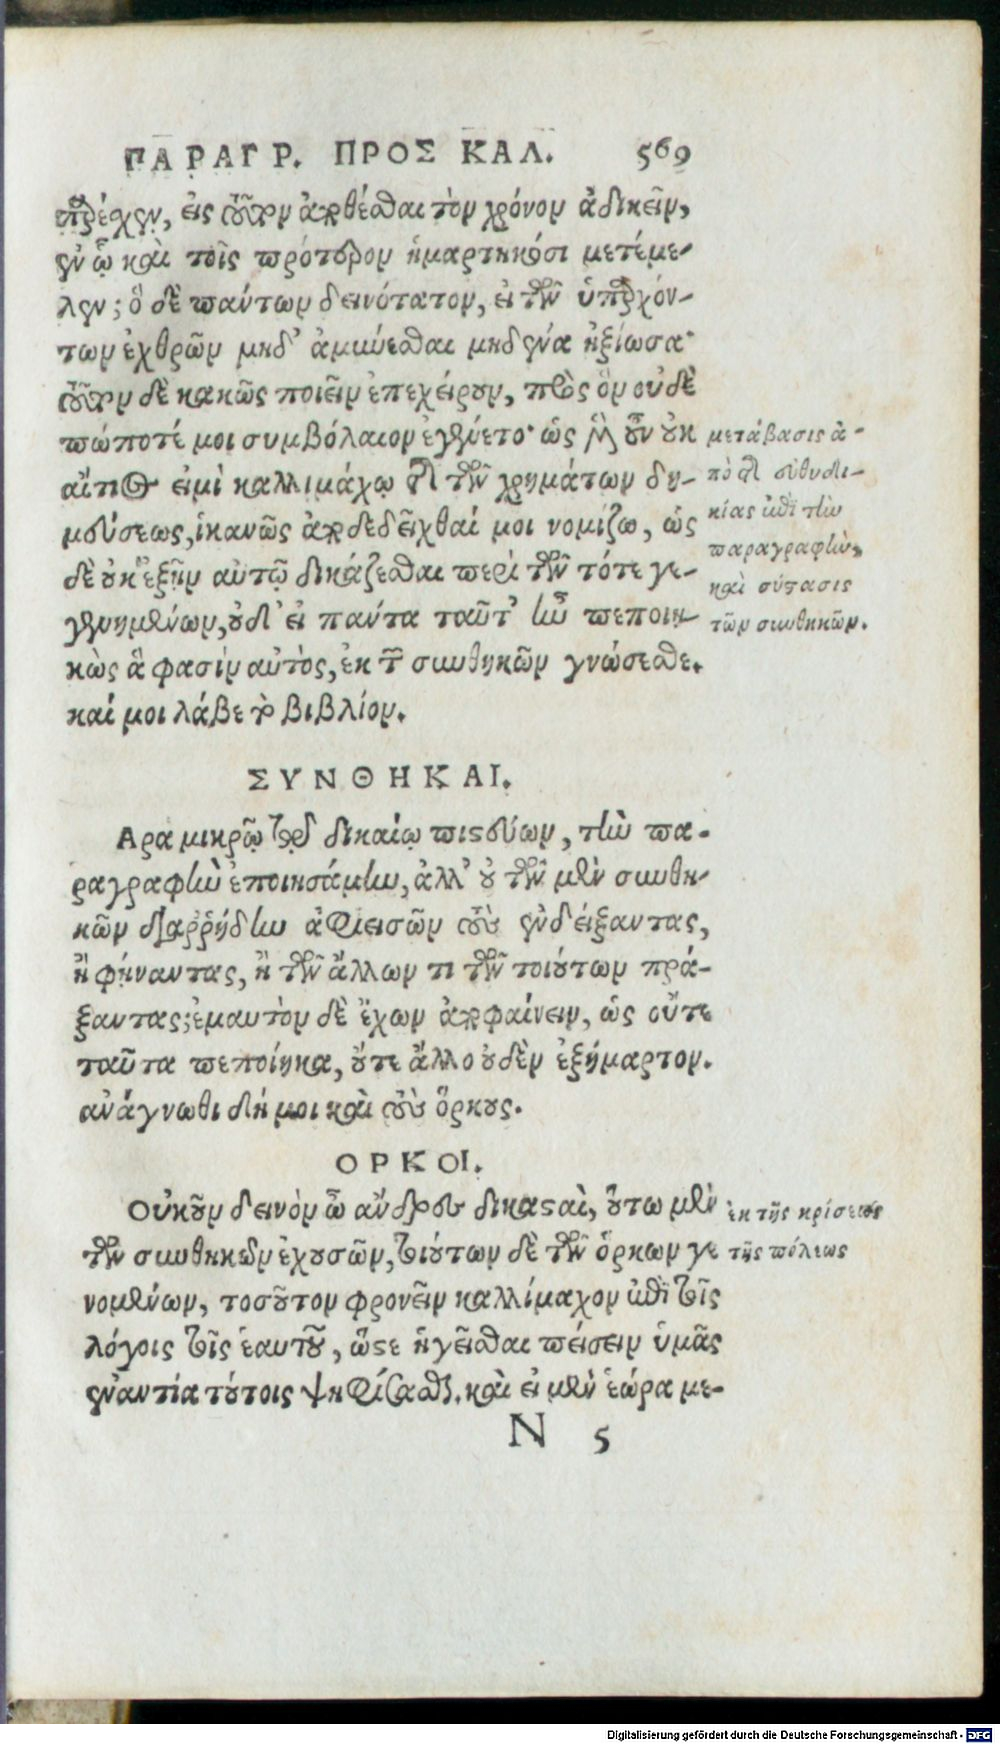 ΠΑΡΑΓΡ. ΠΡΟΣ ΚΑΛ. 569
ὑπάρχειν, εἰς τοῦτον ἀρθέσθαι τὸν χρόνον ἀδικεῖν,
ἐν ᾧ καὶ τοῖς πρότερον ἡμαρτηκόσι μετέμε-
λεν; ὃ δὲ πάντων δεινότατον, εἰ τῶν ὑπαρχόν-
των ἐχθρῶν μηδ' ἀμύνεσθαι μηδένα ἠξίωσα·
τοῦτον δὲ κακῶς ποιεῖν ἐπεχείρουν, πρὸς ὃν οὐδὲ
πώποτέ μοι συμβόλαιον ἐγένετο· ὡς μὲν οὖν οὐκ
αἴτιος εἰμὶ καλλιμάχῳ τῆς τῶν χρημάτων δη-
μεύσεως, ἱκανῶς ἀποδεδεῖχθαί μοι νομίζω, ὡς
δὲ οὐκ ἐξῆν αὐτῷ δικάζεσθαι περὶ τῶν τότε γε-
γενημένων, οὐδ' εἰ πάντα ταῦτ' ἦν πεποιη-
κὼς ἅ φασὶν αὐτὸς, ἐκ τῶν συνθηκῶν γνώσεσθε.
καί μοι λάβε τὸ βιβλίον.
μετάβασις ἀ-
πὸ τῆς εὐθυδι-
κίας ἐπὶ τὴν
παραγραφὴν,
καὶ σύστασις
τῶν συνθηκῶν.
ΣΥΝΘΗΚΑΙ.
Αρα μικρῷ τῷ δικαίῳ πιστεύων, τὴν πα-
ραγραφὴν ἐποιησάμην, ἀλλ' οὐ τῶν μὲν συνθη-
κῶν διαῤῥήδην ἀφιεισῶν τοὺς ἐνδείξαντας,
ἢ φήναντας, ἢ τῶν ἄλλων τι τῶν τοιούτων πρά-
ξαντας; ἐμαυτὸν δὲ ἔχων ἀποφαίνειν, ὡς οὔτε
ταῦτα πεποίηκα, οὔτε ἄλλο οὐδὲν ἐξήμαρτον.
ἀνάγνωθι δή μοι καὶ τοὺς ὅρκους.
ΟΡΚΟΙ.
Οὐκοῦν δεινὸν ὦ ἄνδρες δικασταὶ, οὕτω μὲν
τῶν συνθηκῶν ἐχουσῶν, τοιούτων δὲ τῶν ὅρκων γε
νομένων, τοσοῦτον φρονεῖν καλλίμαχον ἐπὶ τοῖς
λόγοις τοῖς ἑαυτοῦ, ὥστε ἡγεῖσθαι πείσειν ὑμᾶς
ἐναντία τούτοις ψηφίσασθαι. καὶ εἰ μὲν ἑώρα με-
ἐκ τῆς κρίσεως
τῆς πόλεως
N 5
Digitalisierung gefördert durch die Deutsche Forschungsgemeinschaft - DFG